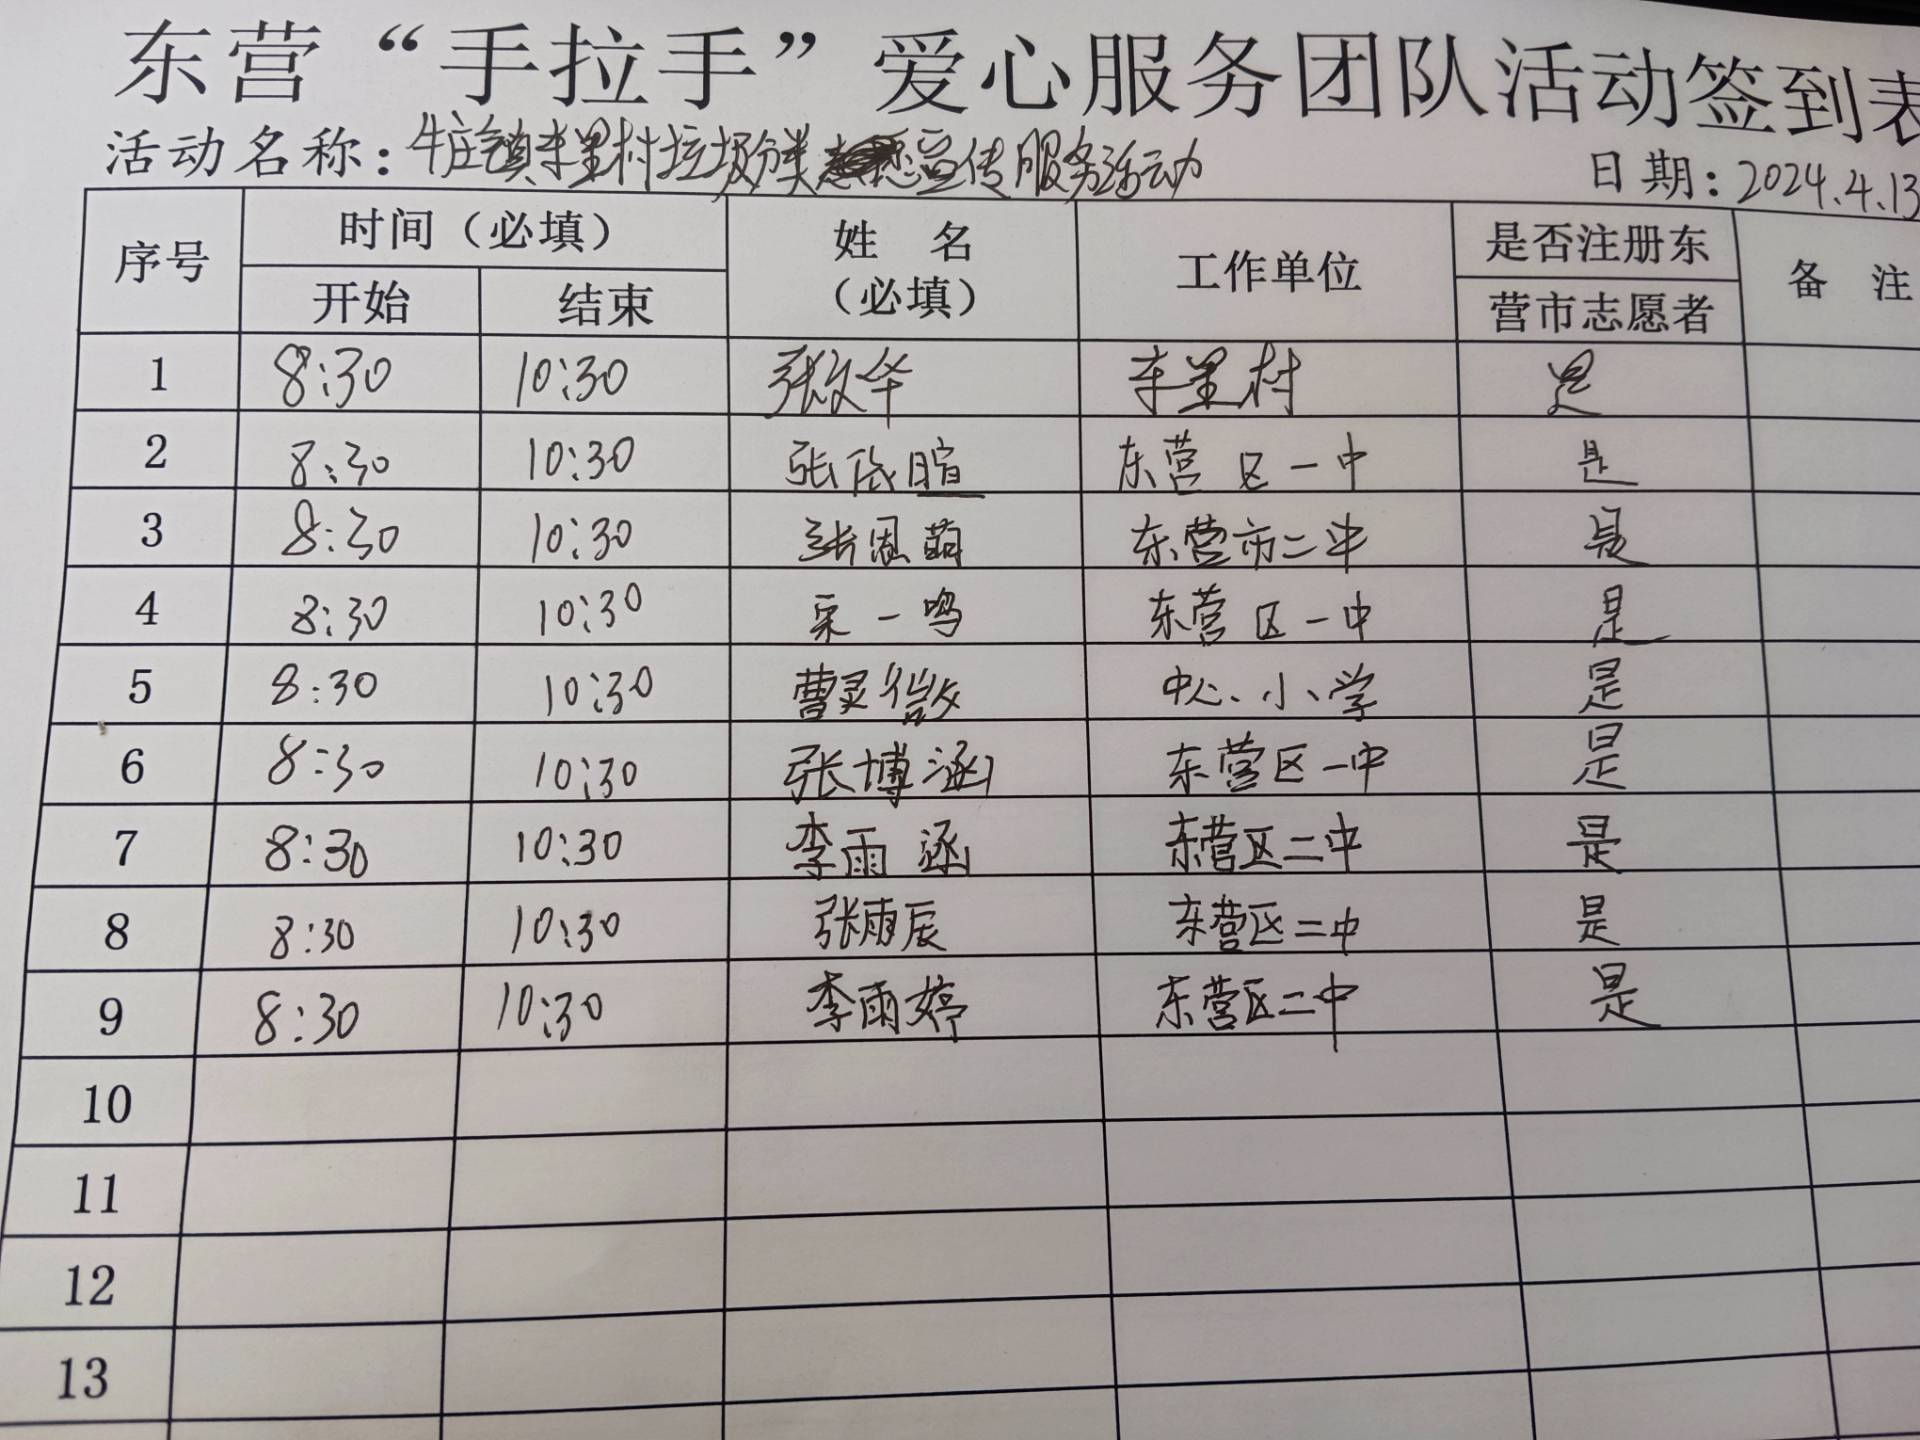 东营“手拉手”爱心服务团队活动签到表
活动名称：牛庄镇李里村垃圾分类宣传服务活动 日期：2024.4.13
序号 时间（必填） 姓 名（必填） 工作单位 是否注册东营市志愿者 备 注
开始 结束
1 8:30 10:30 张文华 村 是
2 8:30 10:30 张依暄 东营区一中 是
3 8:30 10:30 张恩萌 东营市二中 是
4 8:30 10:30 一鸣 东营区一中 是
5 8:30 10:30 曹灵微 中心小学 是
6 8:30 10:30 张博涵 东营区一中 是
7 8:30 10:30 李雨涵 东营区二中 是
8 8:30 10:30 张雨辰 东营区二中 是
9 8:30 10:30 李雨婷 东营区二中 是
10
11
12
13